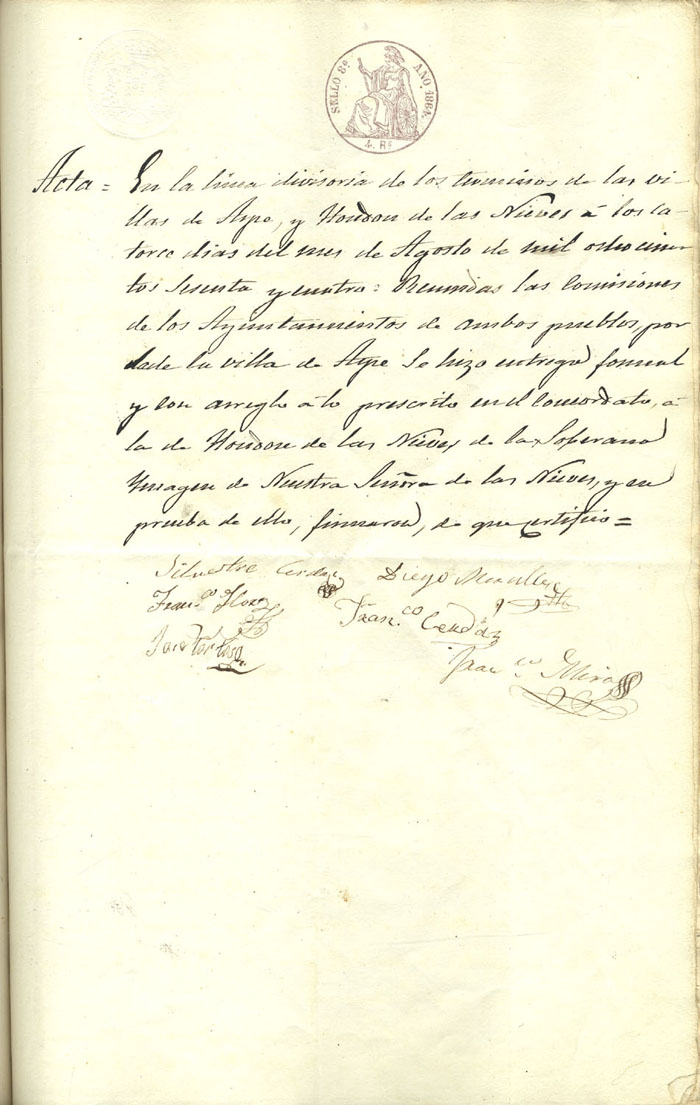 SELLO 8º AÑO 1864.
4. Rs
Acta = En la linea divisoria de los terminos de las vi-
llas de Aspe, y Hondon de las Nieves á los ca-
torce dias del mes de Agosto de mil ochocien-
tos Sesenta y cuatro: Reunidas las Comisiones
de los Ayuntamientos de ambos pueblos, por
la de la villa de Aspe se hizo entrega formal
y con arreglo á lo prescrito en el Concordato, á
la de Hondon de las Nieves de la Soberana
Ymagen de Nuestra Señora de las Nieves, y en
prueba de ello, firmaron, de que certifico =
Silvestre Cerdan Diego
Franco. Franco Cerdán
Tortosa
Franco. Mira